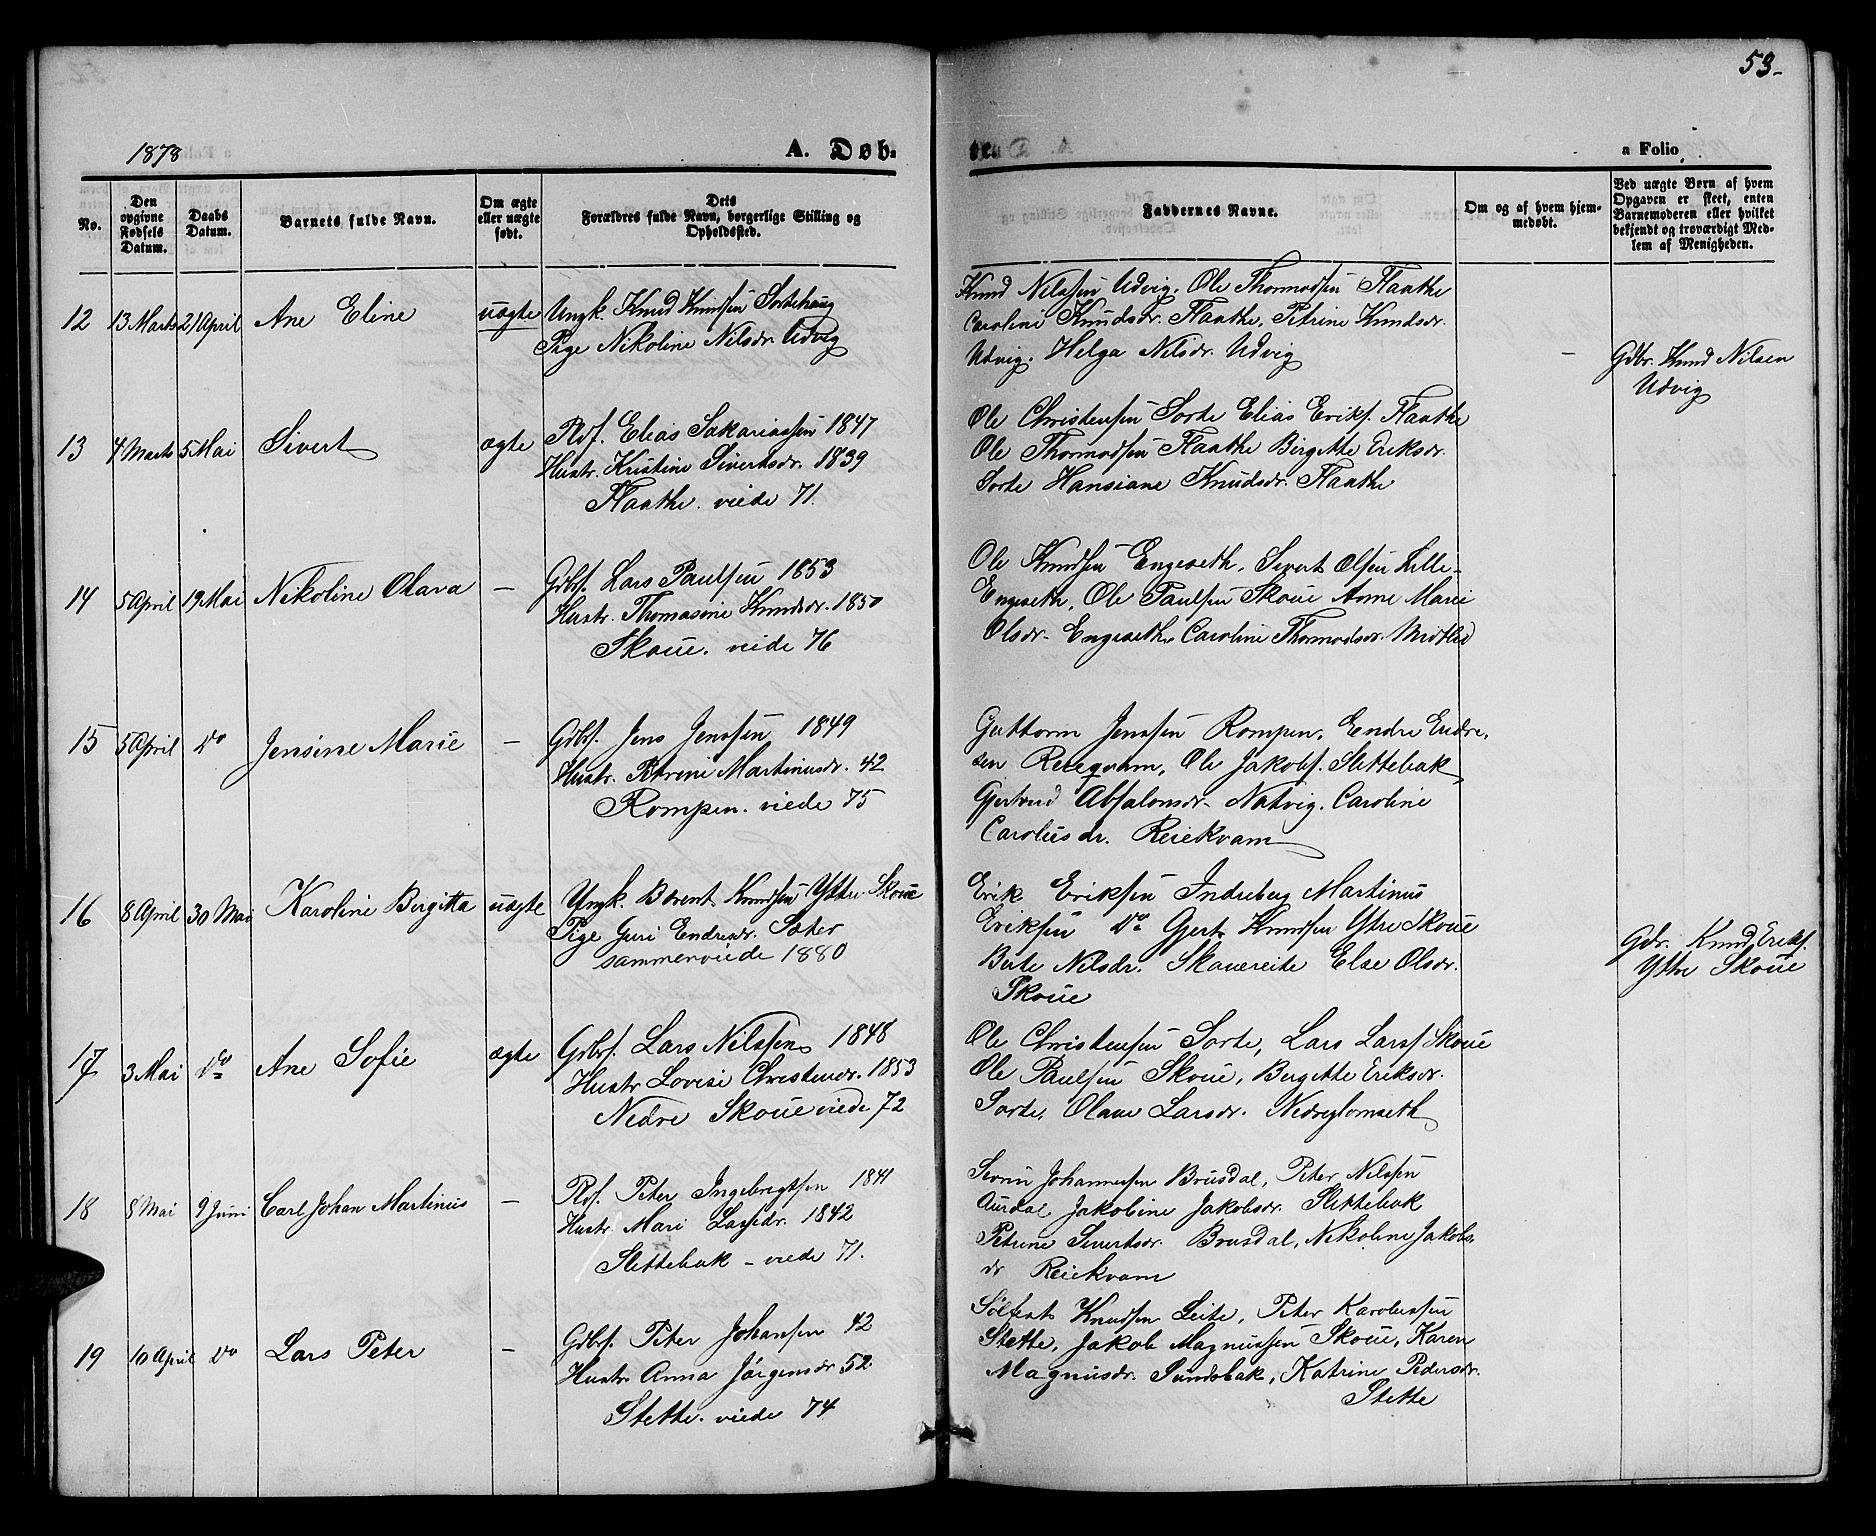 53-
1878
A. Døb-
te.
a Folio
No.
Den opgivne Fødsels Datum.
Daabs Datum.
Barnets fulde Navn.
Om ægte eller uægte født.
Dets Forældres fulde Navn, borgerlige Stilling og Opholdssted.
Faddernes Navne.
Om og af hvem hjemmedøbt.
Ved uægte Børn af hvem Opgaven er skeet, enten Barnemoderen eller hvilket bekjendt og troværdigt Medlem af Menigheden.
12 13 Marts 21 April Ane Eline uægte Ungk. Knud Knudsen Sortehaug
Pige Nikoline Nilsdr. Udvig
Knud Nilssen Udvig, Ole Thormodsen Flaathe
Caroline Knudsdr. Flaathe, Petrine Knudsdr.
Udvig. Helga Nilsdr. Udvig
-
Gdbr. Knud Nilsen
Udvig
13 4 Marts 5 Mai Sivert ægte Rdf. Elias Sakariassen 1847
Hustr. Kristine Sivertsdr. 1839
Flaathe. viede 71.
Ole Christensen Sorte Elias Eriks. Flaathe
Ole Thormodsen Flaathe Birgitte Eriksdr.
Sorte Hansiane Knudsdr. Flaathe
14 5 April 19 Mai Nikoline Olava - Gdbf. Lars Paulsen 1853
Hustr. Thomasine Knudsdr. 1850
Skoue. viede 76
Ole Knudsen Engeseth, Sivert Olsen Lille-
Engeseth, Ole Paulsen Skoue Anne Marie
Olsdr. Engeseth, Caroline Thormodsdr. Midtlid
15 5 April do Jensine Marie - Gdbf. Jens Jenssen 1849
Hustr. Petrine Martinusdr. 42
Rompen. viede 75
Guttorm Jenssen Rompen, Endre Endre-
sen Reieqvam, Ole Jakobs. Slettebak
Gjertrud Absalonsdr. Natvig. Caroline
Carolusdr. Reiekvam
16 8 April 30 Mai Karoline Bergitta uægte Ungk. Bærent Knudsen Yttre Skoue
Pige Guri Endresdr. Sæter
sammenviede 1880
Erik Eriksen Indreberg Martinus
Eriksen do Gjert Knudsen Ytre Skoue
Berte Nilsdr. Skouereite Else Olsdr.
Skoue
Gdr. Knud Eriks.
Yttre Skoue
17 3 Mai do Ane Sofie ægte Gdbf. Lars Nilssen 1848
Hustr Lovise Christensdr. 1853
Nedre Skoue viede 72
Ole Christensen Sorte, Lars Larss Skoue
Ole Paulsen Skoue, Bergitte Eriksdr.
Sorte, Olave Larsdr. Nedreglomseth
18 8 Mai 9 Juni Carl Johan Martinus - Rdf. Peter Ingebregtsen 1841
Hustr. Mari Lassedr. 1842
Slettebak - viede 71.
Johannessen Brusdal, Peter Nilssen
Aurdal Jakobine Jakobsdr. Slettebak
Petrine Sivertsdr. Brusdal, Nikoline Jakobs-
dr Reiekvam
19 10 April do Lars Peter - Gdbf. Peter Johansen 42
Hustr Anna Jörgensdr 52
Stette. viede 74
Sölfest Knudsen Leite, Peter Karolussen
Stette, Jakob Magnussen Skoue, Karen
Magnusdr. Sundsbak, Katrine Pedersdr.
Stette